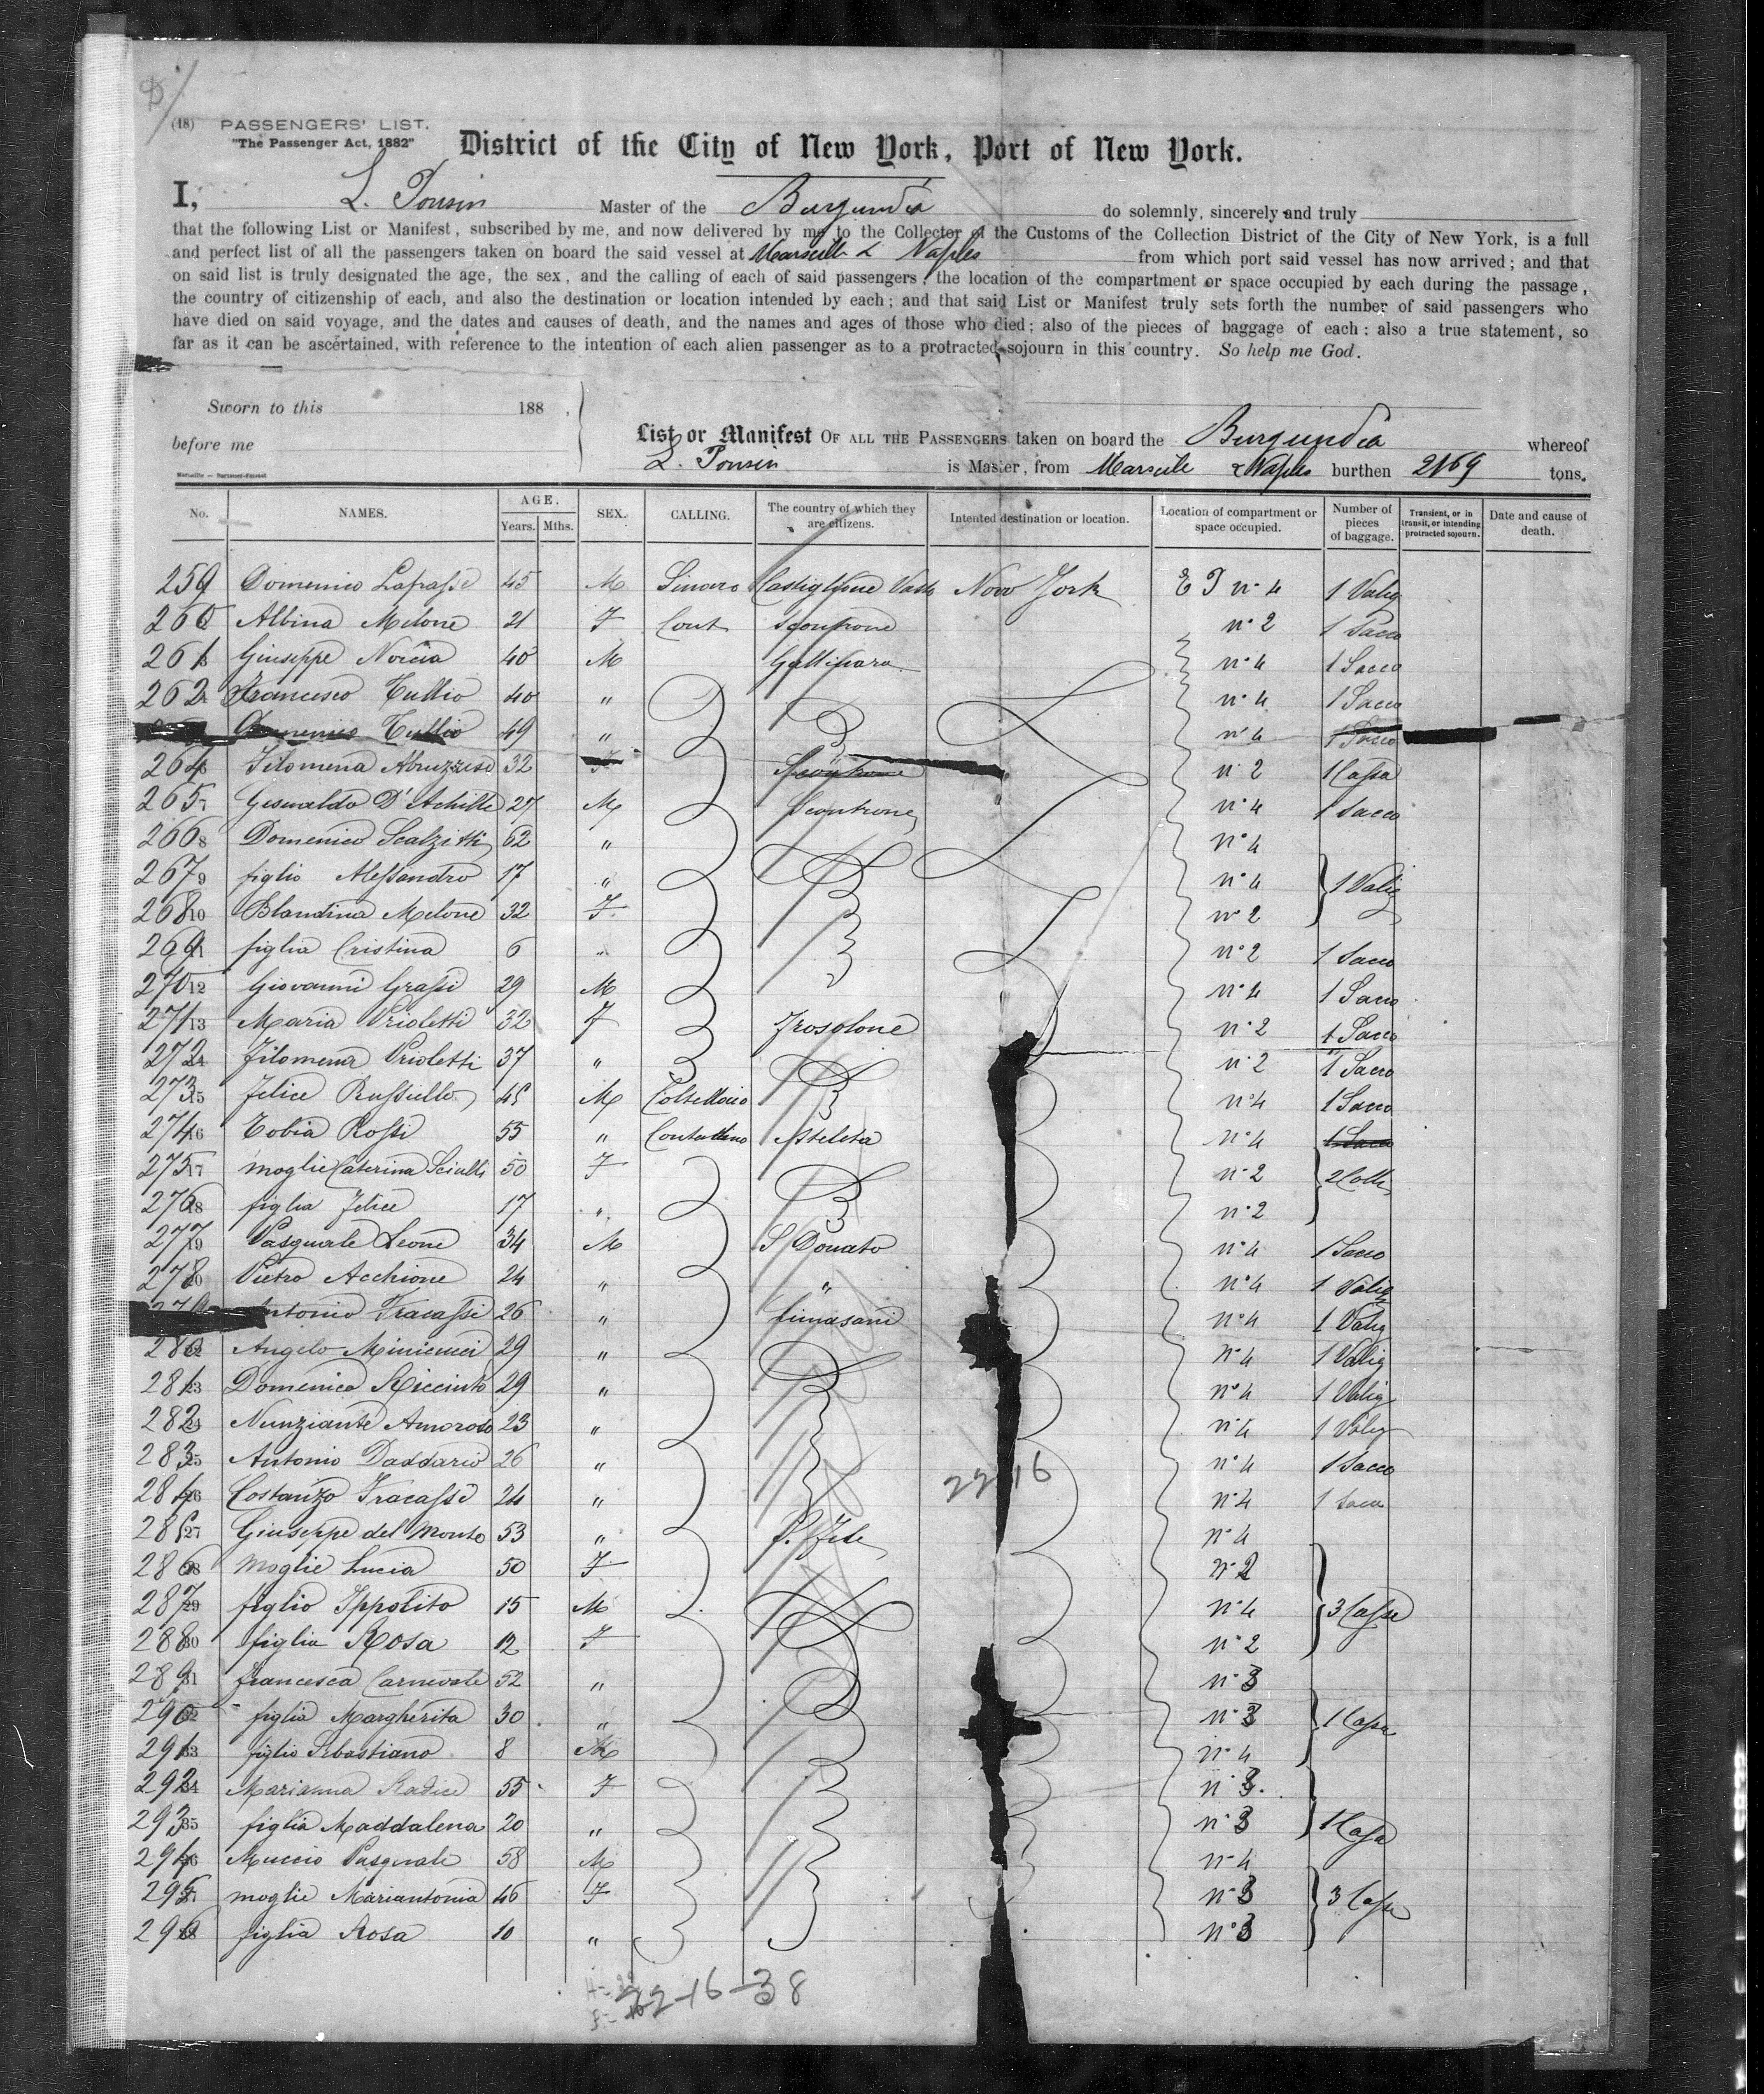 (18) PASSENGERS' LIST.
"The Passenger Act, 1882"
District of the City of New York, Port of New York.
I, L. Ponsin Master of the Burgundia do solemnly, sincerely and truly
that the following List or Manifest, subscribed by me, and now delivered by me to the Collector of the Customs of the Collection District of the City of New York, is a full
and perfect list of all the passengers taken on board the said vessel at Marseille & Naples from which port said vessel has now arrived; and that
on said list is truly designated the age, the sex, and the calling of each of said passengers, the location of the compartment or space occupied by each during the passage,
the country of citizenship of each, and also the destination or location intended by each; and that said List or Manifest truly sets forth the number of said passengers who
have died on said voyage, and the dates and causes of death, and the names and ages of those who died; also of the pieces of baggage of each: also a true statement, so
far as it can be ascertained, with reference to the intention of each alien passenger as to a protracted sojourn in this country. So help me God.
Sworn to this 188
before me
List or Manifest OF ALL THE PASSENGERS taken on board the Burgundia whereof
L. Ponsin is Master, from Marseille & Naples burthen 2169 tons.
No. NAMES. AGE. Years. Mths. SEX. CALLING. The country of which they are citizens. Intented destination or location. Location of compartment or space occupied. Number of pieces of baggage. Transient, or in transit, or intending protracted sojourn. Date and cause of death.
259 Domenico 45 M New York n° 4 1 Valig
260 Albina Melone 21 F Cont Scontrone n° 2 1 Sacco
261 Giuseppe Norcia 40 M n° 4 1 Sacco
262 Francesco Tullio 40 " n° 4 1 Sacco
Domenico Tullio 49 " n° 4 1 Sacco
264 Filomena Abruzzese 32 F Scontrone n° 2 1 Cassa
265 Gesualdo D'Achille 27 M Scontrone n° 4 1 Sacco
266 Domenico Scalzitti 62 " n° 4
267 figlio Alessandro 17 " n° 4 1 Valig
268 Blandina Melone 32 F n° 2
269 figlia Cristina 6 " n° 2 1 Sacco
270 Giovanni Grassi 29 M n° 4 1 Sacco
271 Maria Prioletti 32 F Frosolone n° 2 1 Sacco
272 Filomena Prioletti 37 " n° 2 1 Sacco
273 Felice 45 M Coltellinaio n° 4 1 Sacco
274 Tobia Rossi 55 " Contadino Ateleta n° 4 1 Sacco
275 moglie Caterina Sciulli 50 F n° 2 2 Colli
276 figlia Felice 17 " n° 2
277 Pasquale Leone 34 M S Donato n° 4 1 Sacco
278 Pietro Acchione 24 " " n° 4 1 Valig
Antonio Fracassi 26 " n° 4 1 Valig
280 Angelo Minicucci 29 " n° 4 1 Valig
281 Domenico Ricciuto 29 " n° 4 1 Valig
282 Nunziante Amoroso 23 " n° 4 1 Valig
283 Antonio Daddario 26 " n° 4 1 Sacco
284 Costanzo Fracassi 24 " n° 4 1 Sacco
22 16
285 Giuseppe del Monte 53 " n° 4
286 Moglie Lucia 50 F n° 2
287 figlio Ippolito 15 M n° 4 3 Casse
288 figlia Rosa 12 F n° 2
289 Francesca Carnevale 52 " n° 3
290 figlia Margherita 30 " n° 3 1 Cassa
291 figlio Sebastiano 8 M n° 4
292 Marianna Radice 55 F n° 3
293 figlia Maddalena 20 " n° 3 1 Cassa
294 Muccio Pasquale 58 M n° 4
295 moglie Mariantonia 46 F n° 3 3 Casse
296 figlia Rosa 10 " n° 3
22-16-38